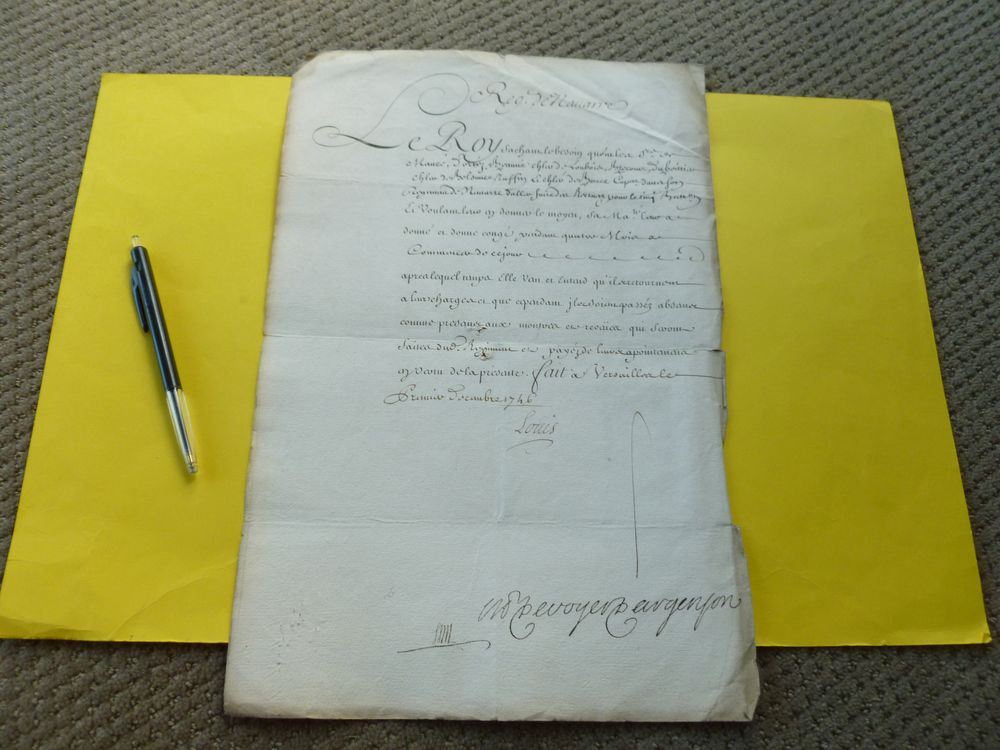 Reg.t de Navarre
Le Roy sachant le besoin qu'ont les S.rs de
Chler de Ruffin Le chler de Cap.nes dans son
Regiment de Navarre d'aller
Et Voulant leur en donner le moyen, Sa Ma.té leur a
donné et donne congé pendant quatre Mois a
Commencer de ce jour
apres lequel temps Elle Veut et Entend qu'ils retournent
a leurs charges et que cependant ils soient passez absens
comme presens aux monstres et reveües qui seront
faites dud. Regiment et payez de leurs apointemens
en Vertu de la présente. fait a Versailles le
Premier Decembre 1746
Louis
M De voyer D'argenson